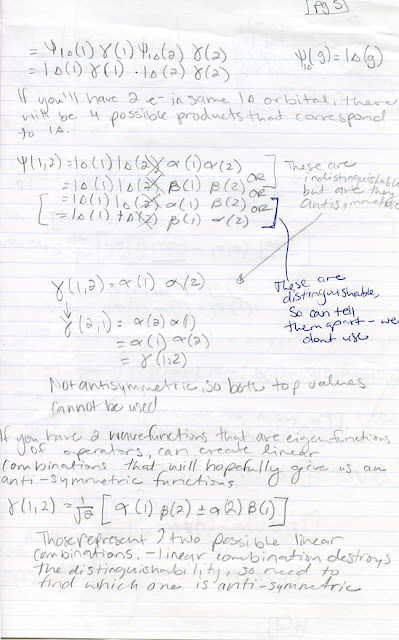 [pg 5]
= Ψ1Δ(1) γ(1) Ψ1Δ(2) γ(2)
Ψ1Δ(g) = 1Δ(g)
= 1Δ(1) γ(1) · 1Δ(2) γ(2)
If you'll have 2 e- in same 1Δ orbital, there
will be 4 possible products that correspond
to 1Δ.
Ψ(1,2) = 1Δ(1) 1Δ(2) α(1) α(2)
= 1Δ(1) 1Δ(2) β(1) β(2) OR
= 1Δ(1) 1Δ(2) α(1) β(2) OR
= 1Δ(1) 1Δ(2) β(1) α(2)
OR
These are
indistinguishable
but are they
antisymmetric
These are
distinguishable,
so can tell
them apart - we
dont use
γ(1,2) = α(1) α(2)
↓
γ(2,1) = α(2) α(1)
= α(1) α(2)
= γ(1,2)
Not antisymmetric, so both top values
cannot be used
If you have 2 wavefunctions that are eigenfunctions
of operators, can create linear
combinations that will hopefully give us an
anti-symmetric functions
γ(1,2) = 1/√2 [ α(1) β(2) ± α(2) β(1) ]
Those represent 2 two possible linear
combinations. - linear combination destroys
the distinguishability, so need to
find which one is anti-symmetric